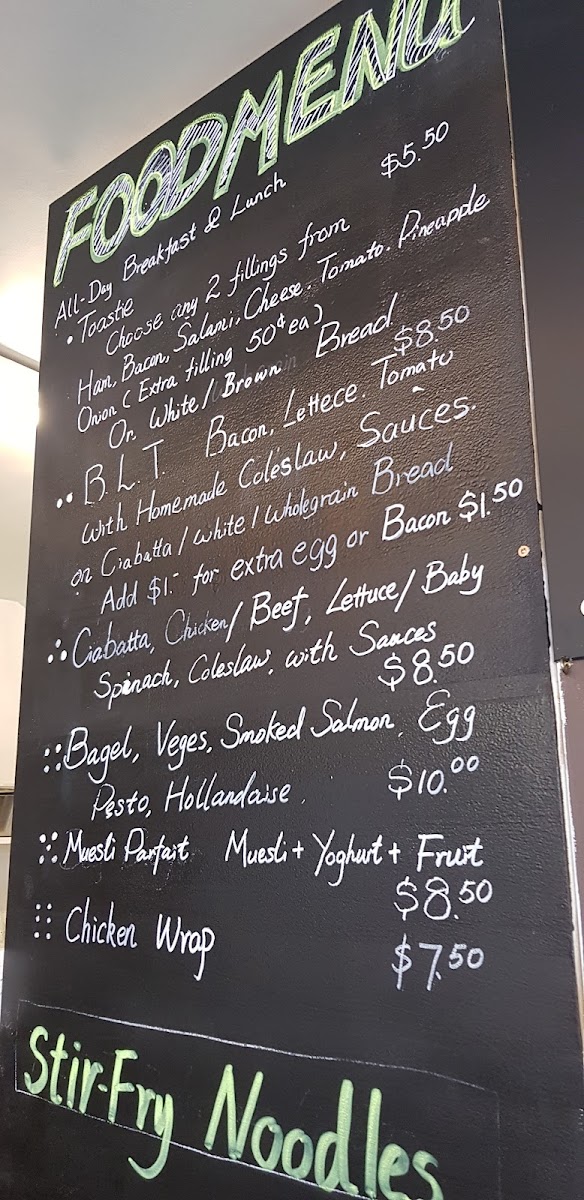 FOOD MENU
All-Day Breakfast & Lunch $5.50
• Toastie
Choose any 2 fillings from
Ham, Bacon, Salami, Cheese, Tomato. Pineapple
Onion (Extra filling 50¢ ea)
On White / Brown Bread
•• B.L.T. $8.50
Bacon, Lettece. Tomato
with Homemade Coleslaw, Sauces.
on Ciabatta / white / wholegrain Bread
Add $1.- for extra egg or Bacon $1.50
Ciabatta, Chicken / Beef, Lettuce / Baby
Spinach, Coleslaw, with Sauces
$8.50
Bagel, Veges, Smoked Salmon, Egg
Pesto, Hollandaise, $10.00
Muesli Parfait Muesli + Yoghurt + Fruit
$8.50
Chicken Wrap $7.50
Stir-Fry Noodles